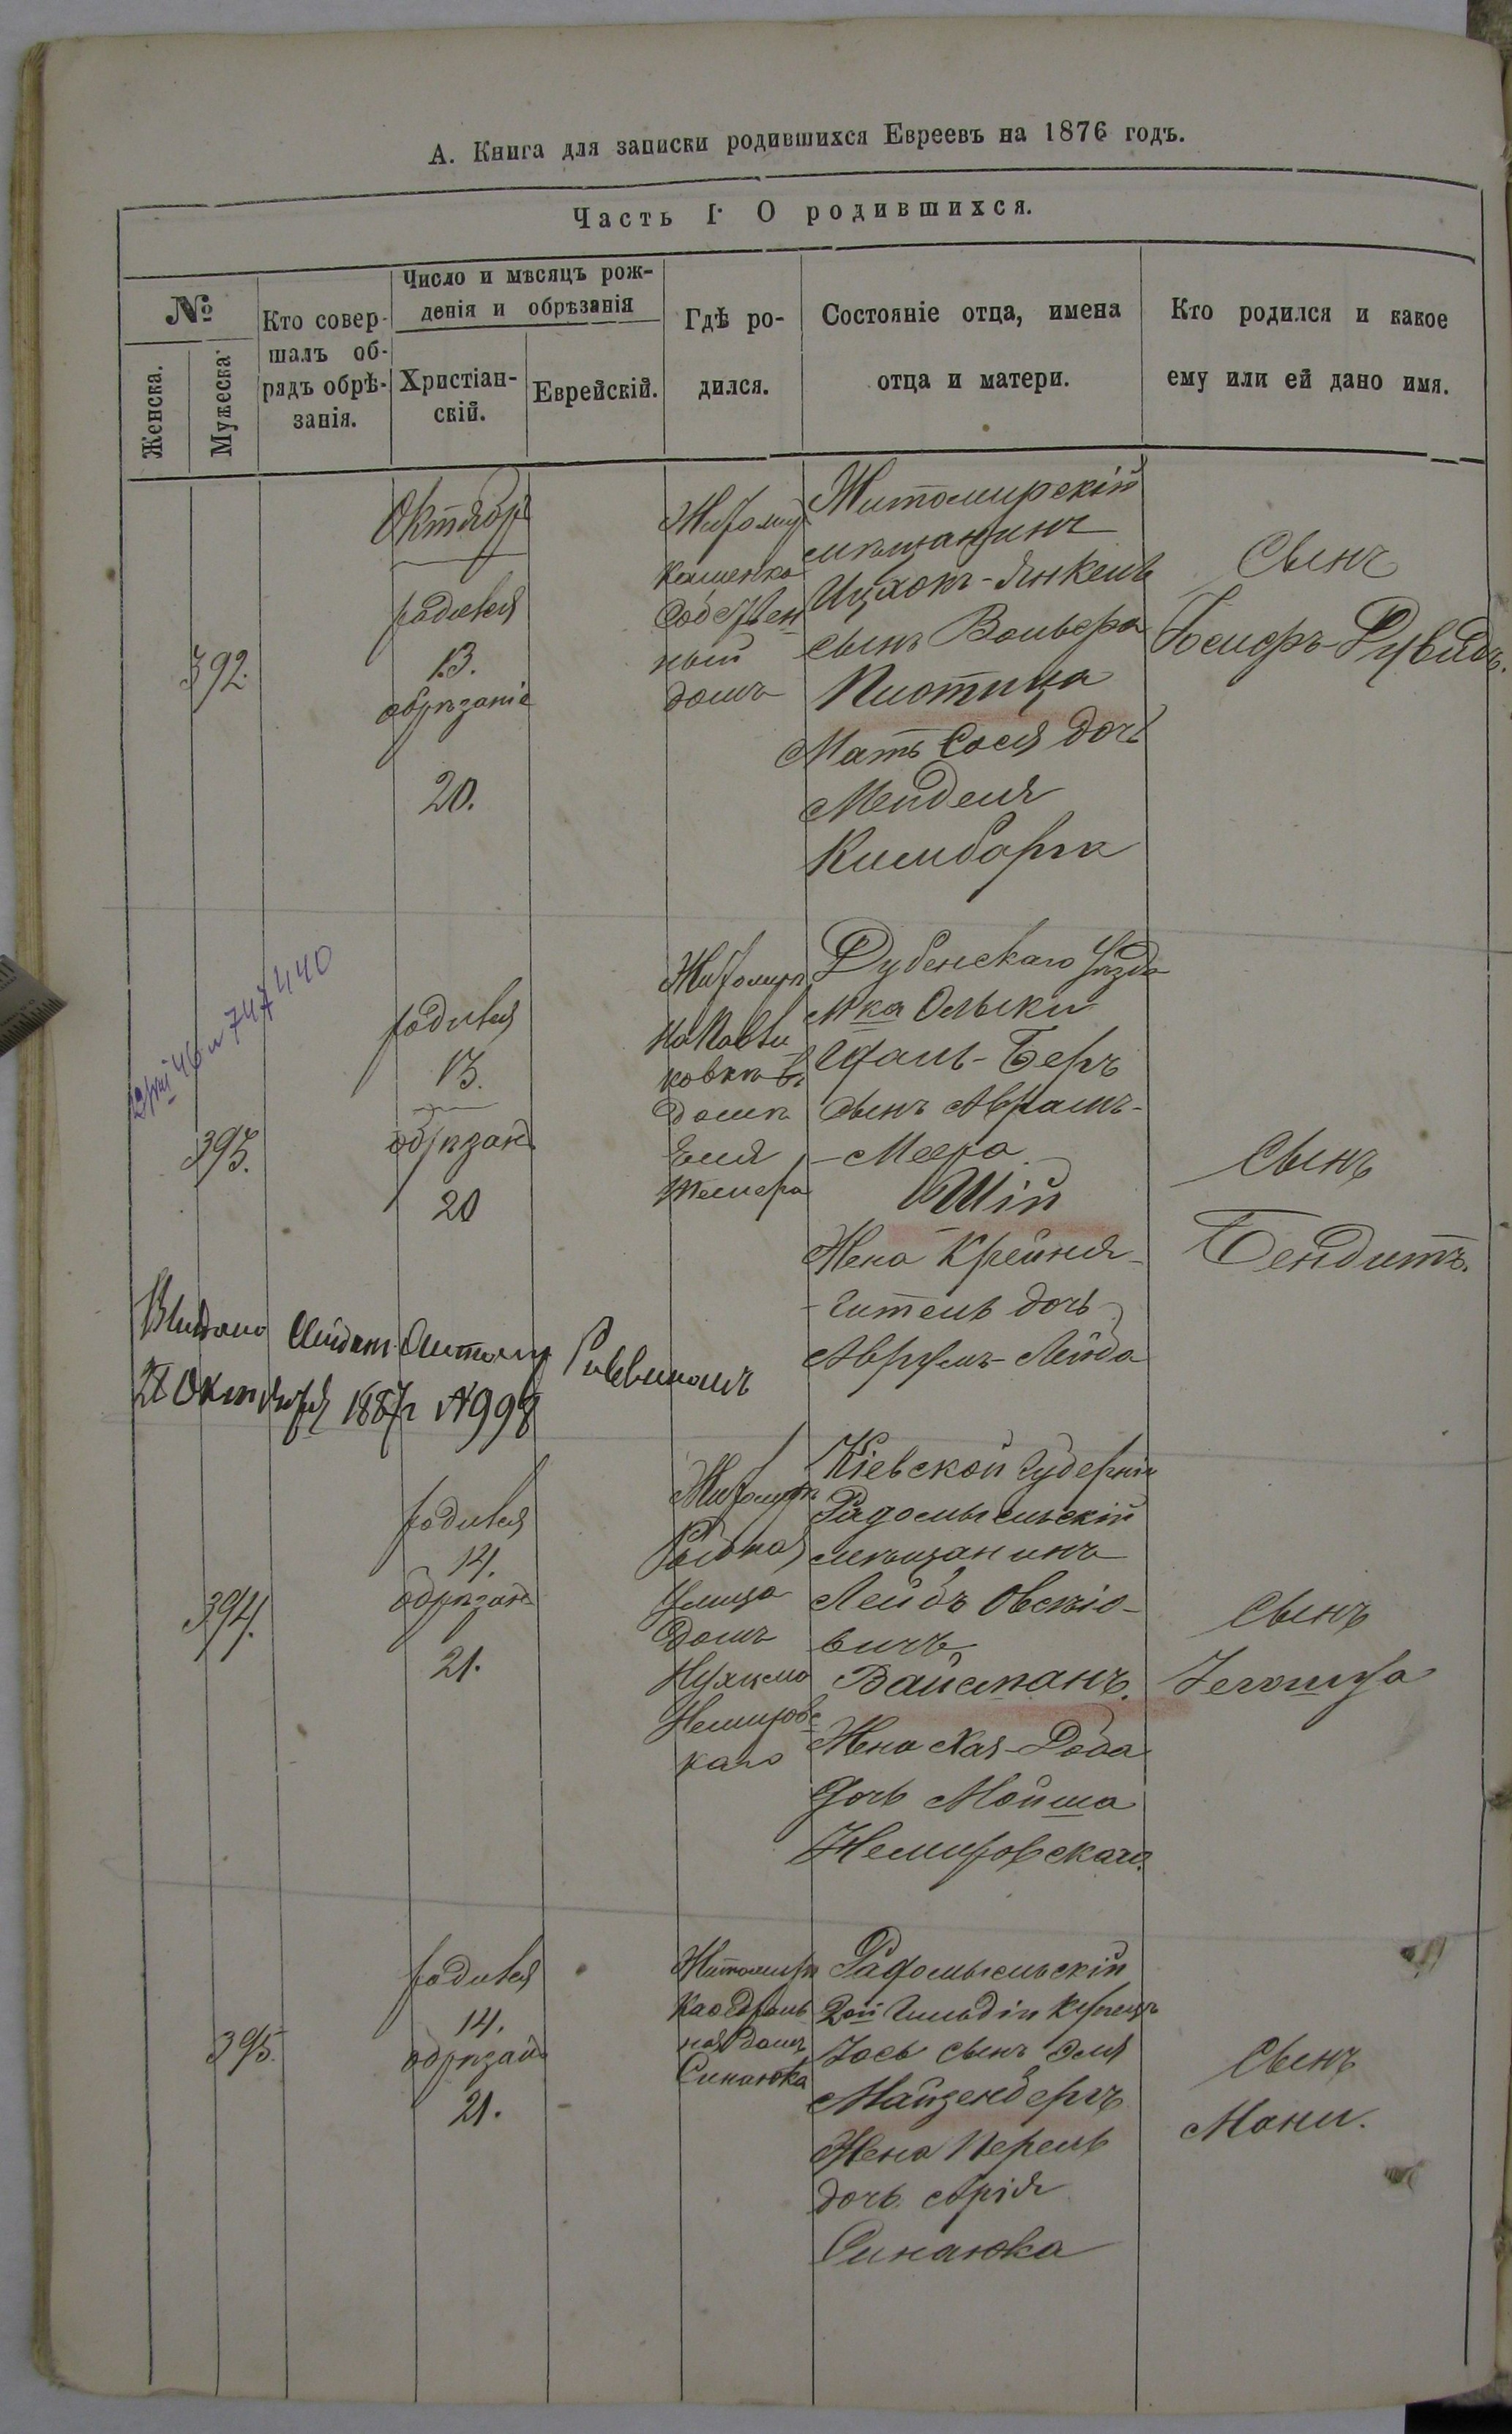 А. Книга для записки родившихся Евреевъ на 1876 годъ.
Часть I. О родившихся.
№
Женска.
Мужеска
Кто совер-
шалъ об-
рядъ обрѣ-
занія.
Число и мѣсяцъ рож-
денія и обрѣзанія
Христіан-
скій.
Еврейскій.
Гдѣ ро-
дился.
Состояніе отца, имена
отца и матери.
Кто родился и какое
ему или ей дано имя.
392.
Октябрь
родился
13.
обрѣзаніе
20.
Житомир
Каменка
Собствен
ный
домъ
Житомирскій
мѣщанинъ
Ицхокъ-Янкель
сынъ Вольфра
Плотица
Мать Сося дочь
Менделя
Кимбарга
Сынъ
393.
родился
13.
обрѣзан
20
Житомиръ
ковкѣ въ
домѣ
Дубенскаго уѣзда
м-ка Олыки
Цаль-Беръ
сынъ Аврамъ-
-Меера
Шій
Жена Крейня-
-Гитель дочь
Аврумъ-Лейба
Сынъ
Бендитъ.
Выдано
28 Октября 1887г №998
Раввиномъ
394.
родился
14.
обрѣзан
21.
Житомиръ
улица
домъ
Немировс
каго
Кіевской Губерніи
Радомысльскій
мѣщанинъ
Лейбъ Овсѣіо-
вичъ
Вайсманъ.
Жена Хая-Доба
дочь Мойша
Немировскаго.
Сынъ
Іегошуа
395.
родился
14.
обрѣзан
21.
Житомиръ
Каѳедраль
ная домъ
Синаюка
Радомысльскій
2ой Гильдіи Купецъ
Іось сынъ Эля
Майзенбергъ
Жена Перель
дочь Арія
Синаюка
Сынъ
Мани.